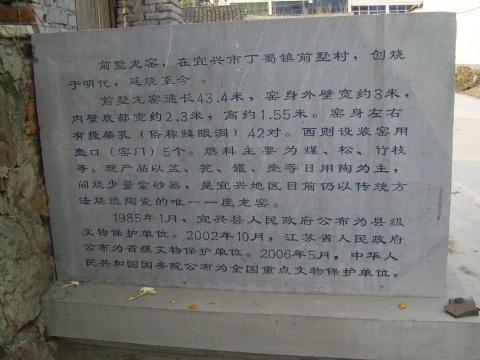 前墅龙窑，在宜兴市丁蜀镇前墅村，创烧
于明代，延烧至今。
前墅龙窑通长43.4米，窑身外壁宽约3米，
内壁底部宽约2.3米，高约1.55米。窑身左右
有投柴孔（俗称鳞眼洞）42对。西则设装窑用
壶口（窑门）5个。燃料主要为煤、松、竹枝
等。现产品以盆、瓮、罐、壶等日用陶为主，
间烧少量紫砂器，是宜兴地区目前仍以传统方
法烧造陶瓷的唯一一座龙窑。
1985年1月，宜兴县人民政府公布为县级
文物保护单位。2002年10月，江苏省人民政府
公布为省级文物保护单位。2006年5月，中华人
民共和国国务院公布为全国重点文物保护单位。